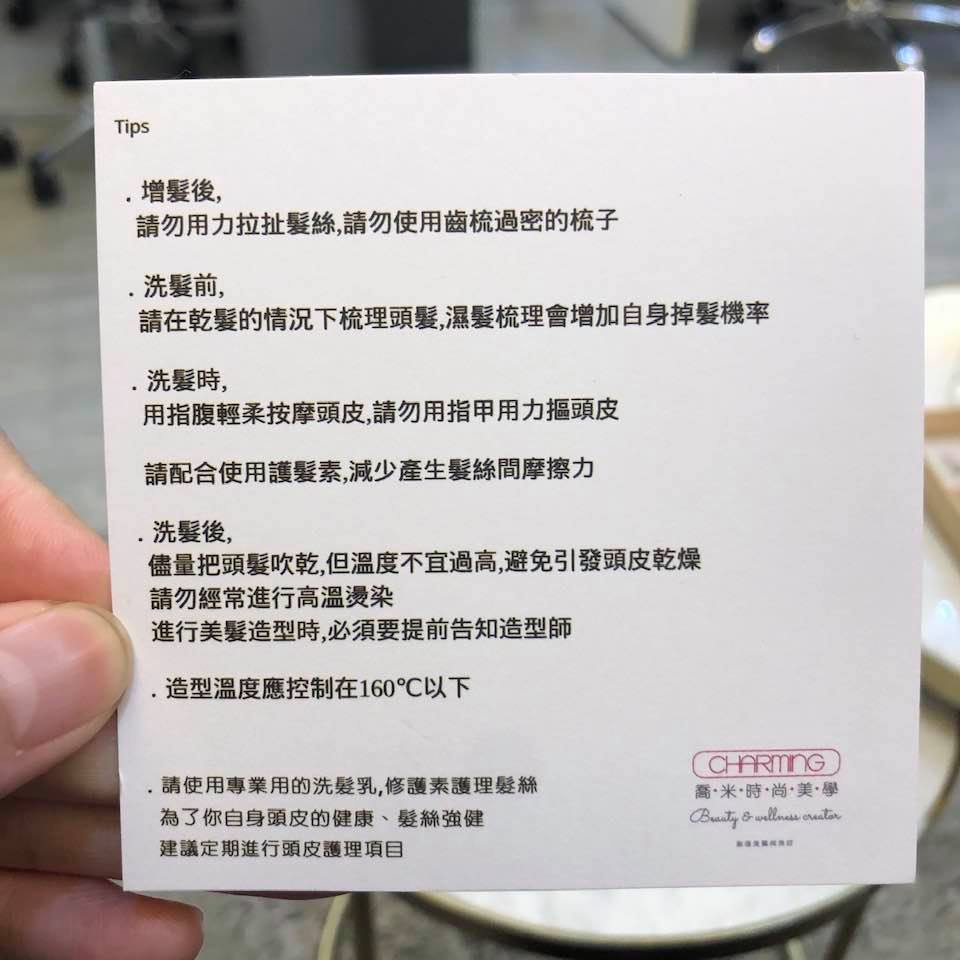 Tips
．增髮後,
請勿用力拉扯髮絲,請勿使用齒梳過密的梳子
．洗髮前,
請在乾髮的情況下梳理頭髮,濕髮梳理會增加自身掉髮機率
．洗髮時,
用指腹輕柔按摩頭皮,請勿用指甲用力摳頭皮
請配合使用護髮素,減少產生髮絲間摩擦力
．洗髮後,
儘量把頭髮吹乾,但溫度不宜過高,避免引發頭皮乾燥
請勿經常進行高溫燙染
進行美髮造型時,必須要提前告知造型師
．造型溫度應控制在160℃以下
．請使用專業用的洗髮乳,修護素護理髮絲
為了你自身頭皮的健康、髮絲強健
建議定期進行頭皮護理項目
CHARMING
喬·米·時·尚·美·學
Beauty & wellness creator